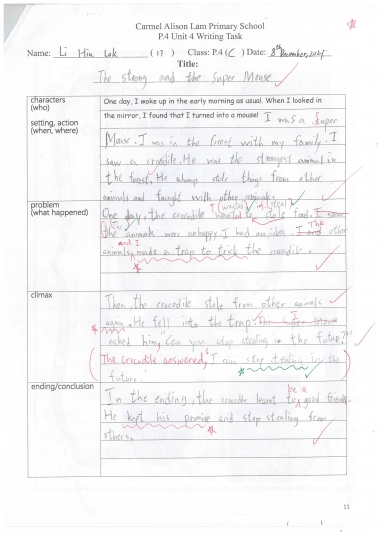 Carmel Alison Lam Primary School
P.4 Unit 4 Writing Task
Name: Li Hiu Lok (17) Class: P.4 (C) Date: 8th December, 2021
Title:
The strong and the Super Mouse
characters
(who)
setting, action
(when, where)
One day, I woke up in the early morning as usual. When I looked in
the mirror, I found that I turned into a mouse! I was a Super
Mouse. I was in the forest with my family. I
saw a crocodile. He was the strongest animal in
the forest. He always stole things from other
animals and fought with other animals.
problem
(what happened)
One day, the crocodile wanted to stole food.
the animals were unhappy. I had an idea. The other
and I
animals made a trap to trick the crocodile.
climax
Then, the crocodile stole from other animals
again. He fell into the trap. The Super Mouse I
asked him, Can you stop stealing in the future?"
The crocodile answered, I can stop stealing in the
future.
ending/conclusion
In the ending, the crocodile learnt to be a good friend.
He kept his promise and stop stealing from
others.
11